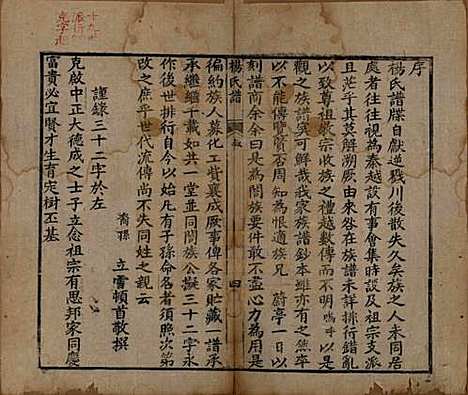 序
楊氏譜牒自獻逆殘川後散失久矣族之人未同居
處者往往視為秦越談及有事會集時談及祖宗支派
且茫乎其莫解溯厥由來咎在族譜未詳排行錯亂
以致尊祖敬宗收族之禮越數傳而不明嗚呼以
觀之族譜奠可鮮哉我家族譜鈔本鮮亦有之焦率
以不能傳覽贊否周知為恨適族兄 蔚亭一日以
刻譜商余余曰是為闔族要件敢不盡心力為用是
楊氏譜 序 四
徧約族人募化工貲襄成厥事俾各家貯藏一譜承
承繼繼千載如一堂並同闔族公議三十二字永
定排行自今以始凡有子孫命名者須照次第
改之庶乎世代流傳尚不失同姓之親云
裔孫 立雷頓首敬撰
謹錄三十二字於左
克啟中正大德成之士子立念祖宗有思邦家同慶
富貴必宜賢才生育定樹丕基